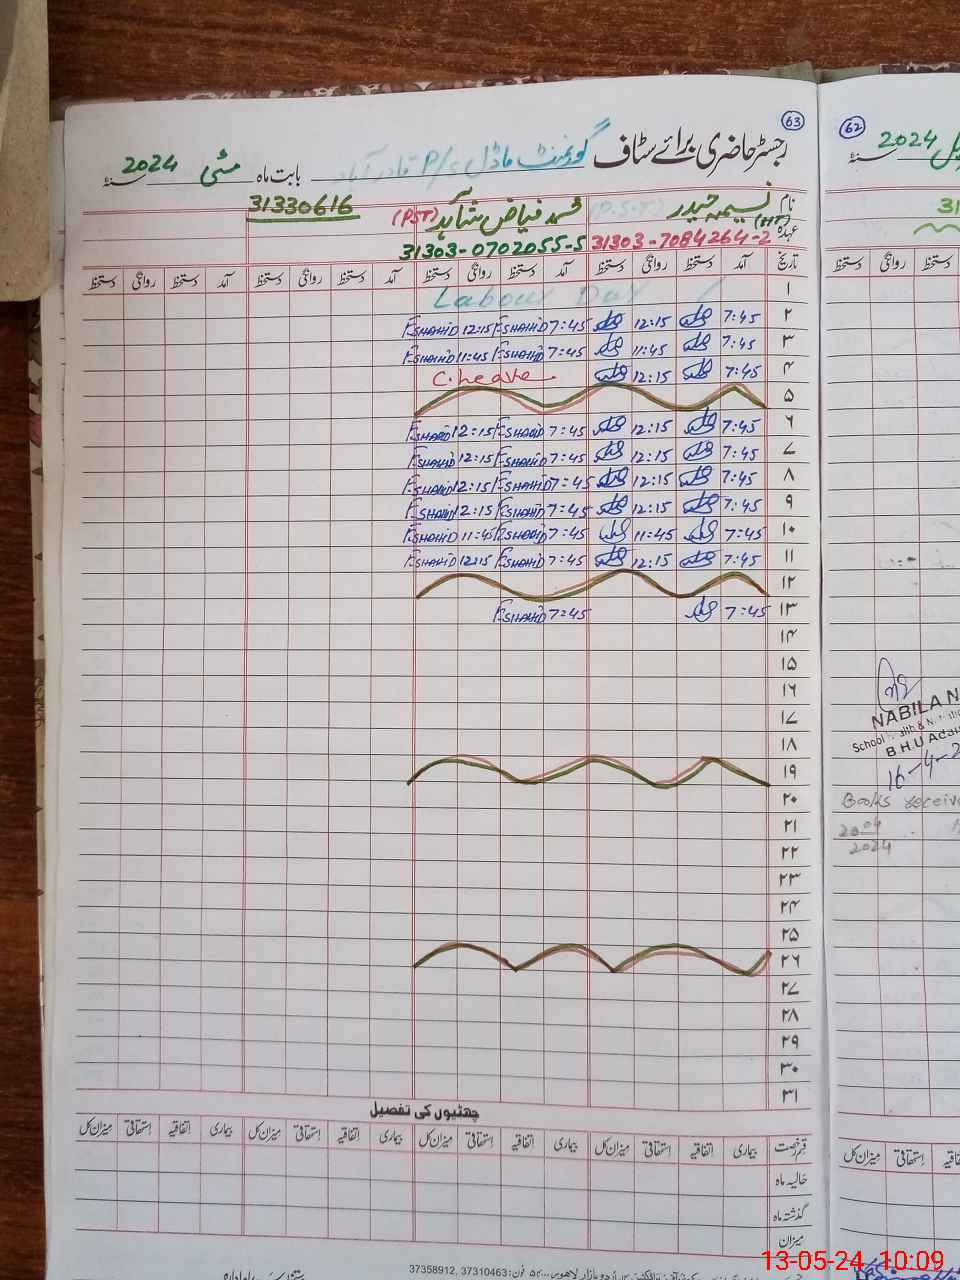 63
رجسٹر حاضری برائے سٹاف گورنمنٹ ماڈل P/S قادر آباد بابت ماہ مئی 2024 سنہ
نام نسیمہ حیدر محمد فیاض شاہد (PST) 31330616
عہدہ (HT) 31303-7084264-2 31303-0702055-5
تاریخ آمد دستخط روانگی دستخط آمد دستخط روانگی دستخط آمد دستخط روانگی دستخط آمد دستخط روانگی دستخط
۱ Labour Day
۲ 7:45 12:15 7:45 F.SHAHID 12:15 F.SHAHID
۳ 7:45 11:45 7:45 F.SHAHID 11:45 F.SHAHID
۴ 7:45 12:15 C.Leave
۵
۶ 7:45 12:15 7:45 F.SHAHID 12:15 F.SHAHID
۷ 7:45 12:15 7:45 F.SHAHID 12:15 F.SHAHID
۸ 7:45 12:15 7:45 F.SHAHID 12:15 F.SHAHID
۹ 7:45 12:15 7:45 F.SHAHID 12:15 F.SHAHID
۱۰ 7:45 11:45 7:45 F.SHAHID 11:45 F.SHAHID
۱۱ 7:45 12:15 7:45 F.SHAHID 12:15 F.SHAHID
۱۲
۱۳ 7:45 7:45 F.SHAHID
۱۴
۱۵
۱۶
۱۷
۱۸
۱۹
۲۰
۲۱
۲۲
۲۳
۲۴
۲۵
۲۶
۲۷
۲۸
۲۹
۳۰
۳۱
چھٹیوں کی تفصیل
قسم رخصت بیماری اتفاقیہ استحقاقی میزان کل بیماری اتفاقیہ استحقاقی میزان کل بیماری اتفاقیہ استحقاقی میزان کل بیماری اتفاقیہ استحقاقی میزان کل
حالیہ ماہ
گذشتہ ماہ
میزان
فون: 37310463, 37358912
62
2024 سنہ
31
دستخط روانگی دستخط
NABILA N
School Health & N
B.H.U Ada
16-4-2
Books receive
2004
2024
استحقاقی میزان کل
13-05-24 10:09